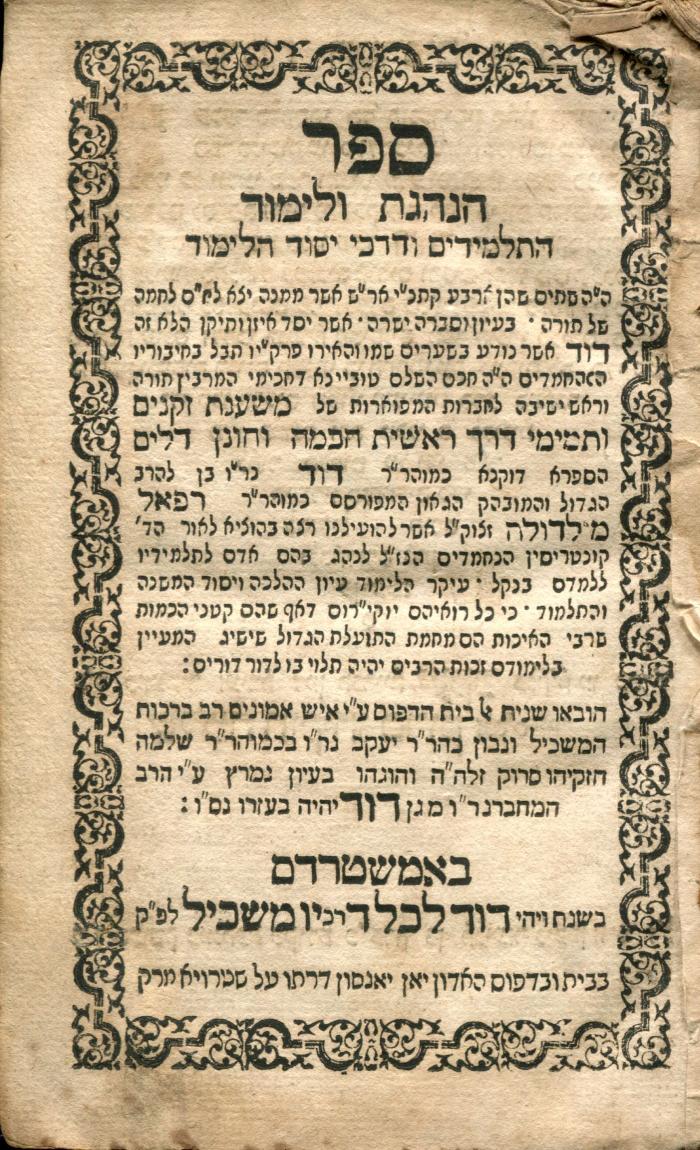 ספר
הנהגת ולימוד
התלמידים ודרכי יסוד הלימוד
ה"ה שתים שהן ארבע קתנ"י אר"ש אשר ממנה יצא לח"ם לחמה
של תורה · בעיון וסברה ישרה · אשר יסד איזן ותיקן הלא זה
דוד אשר נודע בשערים שמו והאירו פרק"יו תבל בחיבוריו
הנחמדים ה"ה חכם השלם טוביינא דחכימי המרבין תורה
וראש ישיבה לחברות המפוארות של משענת זקנים
ותמימי דרך ראשית חכמה וחונן דלים
הספרא דוקנא כמוהר"ר דוד נר"ו בן להרב
הגדול והמובהק הגאון המפורסם כמוהר"ר רפאל
מילדולה זצוק"ל אשר להועילנו רצה בהוציא לאור הד'
קונטריסין הנחמדים הנז"ל לנהג בהם אדם לתלמידיו
ללמדם בנקל · עיקר הלימוד עיון ההלכה ויסוד המשנה
והתלמוד · כי כל רואיהם יוקי"רום דאף שהם קטני הכמות
שרבי האיכות הם מחמת התועלת הגדול שישיג המעיין
בלימודם זכות הרבים יהיה תלוי בו לדור דורים :
הובאו שנית לבית הדפוס ע"י איש אמונים רב ברכות
המשכיל ונבון בהר"ר יעקב נר"ו בכמוהר"ר שלמה
חזקיהו סרוק זלה"ה והוגהו בעיון נמרץ ע"י הרב
המחבר נר"ו מגן דוד יהיה בעזרו נס"ו :
באמשטרדם
בשנת ויהי דוד לכל דרכיו משכיל לפ"ק
בבית ובדפוס האדון יאן יאנסון דרתו על שטרויא מרק